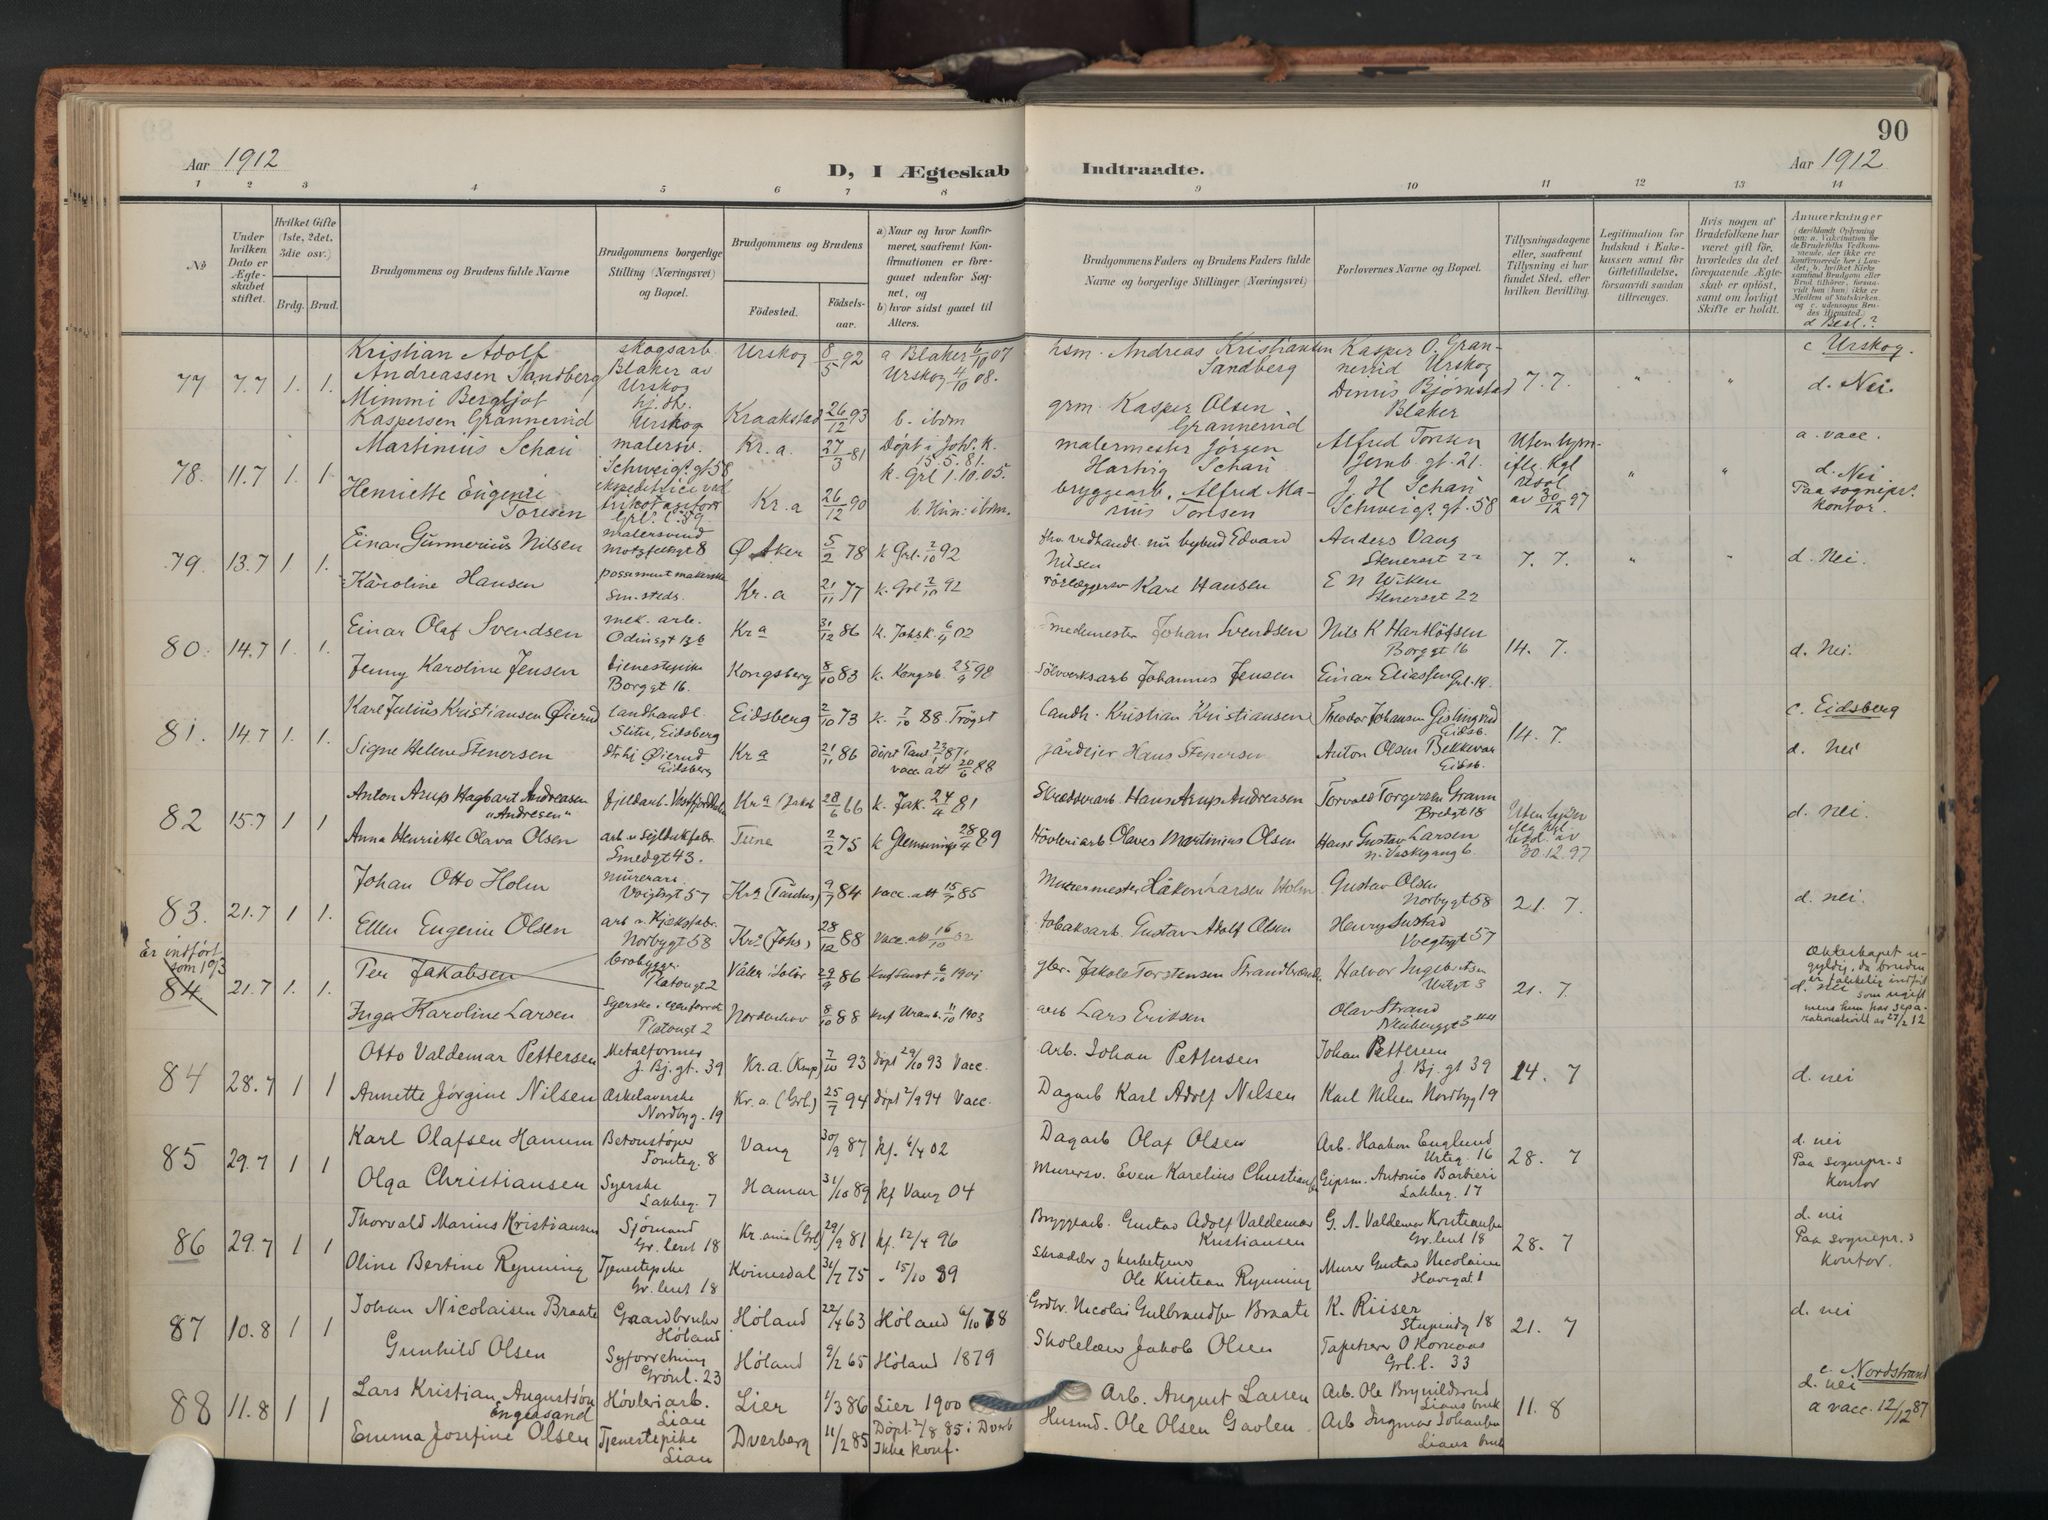 90
Aar 1912
D, I Ægteskab Indtraadte.
Aar 1912
1 2 3 4 5 6 7 8 9 10 11 12 13 14
No
Under hvilken Dato er Ægteskabet stiftet.
Hvilket Gifte (1ste, 2det, 3die osv.)
Brdg. Brud.
Brudgommens og Brudens fulde Navne
Brudgommens borgerlige Stilling (Næringsvei) og Bopæl.
Brudgommens og Brudens
Födested. Födselsaar.
a) Naar og hvor konfirmeret, saafremt Konfirmationen er foregaaet udenfor Sognet, og
b) hvor sidst gaaet til Alters.
Brudgommens Faders og Brudens Faders fulde Navne og borgerlige Stillinger (Næringsvei)
Forlovernes Navne og Bopæl.
Tillysningsdagene eller, saafremt Tillysning ei har fundet Sted, efter hvilken Bevilling.
Legitimation for Indskud i Enkekassen samt for Giftetilladelse, forsaavidt saadan tiltrænges.
Hvis nogen af Brudefolkene har været gift för, hvorledes da det foregaaende Ægteskab er oplöst, samt om lovligt Skifte er holdt.
Anmærkninger
d Besl.?
77 7.7 1. 1.
Kristian Adolf Andreassen Sandberg
skogsarb. Blaker av Urskog
Urskog 8/5 92
a Blaker 6/10 07 Urskog 4/10 08.
hsm. Andreas Kristiansen Sandberg
Kasper O. Grannerud Urskog
7. 7.
c Urskog.
Mimmi Bergljot Kaspersen Grannerud
hj. dt. Urskog
Kraakstad 26/12 93
b. ibdm
grm. Kasper Olsen Grannerud
Dinus Bjørnstad Blaker
d. Nei.
78. 11.7 1. 1.
Martinius Schau
malersv. Schweigs. gt 58
Kr.a. 27/3 81
Døpt i Joh. k. 15.5.81. k. Grl 1.10.05.
malermester Jörgen Hartvig Schau
Alfred Toresen Jernb. gt. 21.
Uten lysn. iflg. kgl resol. av 30/12 97
a. vacc.
d. Nei
Henriette Eugenie Toresen
ekspeditrice ved trikotagefor. Grl. l. 59
Kr.a 26/12 90
b. Hun: ibdm.
bryggearb. Alfred Marius Toresen
J H Schau Schweigs. gt. 58
Paa sognepr. kontor.
79. 13.7 1 1.
Einar Gunnerius Nilsen
malersvend Motzfeldtgt 8
Ø Aker 5/2 78
k. Grl. 2/10 92
fhv. vedhandl. nu bybud Edvard Nilsen
Anders Vang Stenersgt 22
7. 7.
d. Nei.
Karoline Hansen
possementmakerske Sm. steds.
Kr.a 21/11 77
k. Grl 2/10 92
rörlæggersv Karl Hansen
E N Wiken Stenersgt 22
80. 14.7 1. 1.
Einar Olaf Svendsen
mek. arb. Odinsgt 13 b
Kr a 31/12 86
k. Johsk. 6/4 02
smedemester Johan Svendsen
Nils K Hartlöfsen Borggt 16
14. 7.
d. Nei.
Jenny Karoline Jensen
tjenestepike Borggt 16.
Kongsberg 8/10 83
k. Kongsb. 25/9 98
Sölvverksarb Johannes Jensen
Einar Eliassen Grl. 19.
81. 14.7 1. 1.
Karl Julius Kristiansen Øierud
landhandl. Slitu, Eidsberg
Eidsberg 2/10 73
k. 7/10 88 Trögst
Landh. Kristian Kristiansen
Theodor Johansen Gislingrud Eidsb.
14. 7.
c. Eidsberg
Signe Helene Stenersen
Øierud Eidsberg
Kr a 21/11 86
vacc. att 20/6 88
gårdeier Hans Stenersen
Anton Olsen Bekkevar Eidsb.
d. Nei
82 15.7 1 1
Anton Arup Hagbart Andreasen "Andresen"
fjeldarb. Vestfjorddalen
Kr a (Jakob) 28/6 66
k. Jak. 24/4 81
Skrædderarb. Hans Arup Andreasen
Torvald Torgersen Grann Bredgt 18
Uten lysn iflg kgl resol. av 30.12.97
d. nei.
Anna Henriette Olava Olsen
arb v. Seildukfabr. Smedgt 43.
Tune 2/2 75
k Glemminge 28/4 89
Høvleriarb Olaves Martinius Olsen
Hans Gustav Larsen n. Vaskegang 6.
83. 21.7 1 1.
Johan Otto Holm
murerarb Voigtsgt 57
Kr a (Paulus) 9/7 84
vacc. att 15/7 85
Murermester Håken Larsen Holm
Gustav Olsen Norbygt 58
21. 7.
d. nei.
Ellen Eugenie Olsen
arb v. Kjeksfabr. Norbygt 58
Kr a (Johs) 28/12 88
Vacc. att 16/10 02
tobaksarb. Gustav Adolf Olsen
Henry Sustad Voegtsgt 57
Er indført som 103
84 21.7 1. 1.
Per Jakobsen
brobygger. Platousgt 2
Våler i Solør 29/9 86
gbr. Jakob Torstensen Strandbraend
Halvor Ingebretsen
21. 7.
Ekteskapet ugyldig, da bruden er
d. nei
Inga Karoline Larsen
Syerske Platousgt 2
Norderhov 8/10 88
1903
arb Lars Eriksen
Olav Strand
84 28.7 1 1
Otto Valdemar Pettersen
Metalformer J. Bj. gt. 39
Kr. a. (Kmp) 7/10 93
døpt 29/10 93 Vacc.
Arb. Johan Pettersen
Johan Pettersen J. Bj. gt 39
14. 7
d. nei
Annette Jørgine Nilsen
Æskelaverske Nordbyg. 19
Kr. a. (Grl) 25/7 94
døpt 2/9 94 Vacc.
Dagarb Karl Adolf Nilsen
Karl Nilsen Nordbyg 19
85 29.7 1 1
Karl Olafsen Hanum
Betonstøper Tomteg. 8
Vang 30/9 87
kf. 6/4 02
Dagarb Olaf Olsen
Arb. Haakon Englund Urteg. 16
28. 7
d. nei
Paa sognepr.s kontor
Olga Christiansen
Syerske Lakkeg. 7
Hamar 31/10 89
kf Vang 04
Murersv. Even Karelius Christiansen
Gipsm. Antonio Barbieri Lakkeg. 17
86 29.7 1 1
Thorvald Marius Kristiansen
Sjømand Gr. leret 18
Kr. ania (Grl) 29/9 81
kf. 12/4 96
Bryggearb. Gustav Adolf Valdemar Kristiansen
G. A. Valdemar Kristiansen Gr. leret 18
28. 7
d. nei
Paa sognepr.s kontor.
Oline Bertine Rynning
Tjenestepike Gr. leret 18
Kvinesdal 31/7 75
" 15/10 89
skrædder og kirketjener Ole Kristian Rynning
Murer Gustav Nicolaisen
87 10.8 1 1
Johan Nicolaisen Braate
Gaardbruker Høland
Høland 22/4 63
Høland 6/10 78
Grdbr. Nicolai Gulbrandsen Braate
K. Riiser 18
21. 7
d. nei
Gunhild Olsen
Syforretning Grønl. 23
Høland 9/2 65
Høland 1879
Skolelær Jakob Olsen
Tapetserer O Kornaas Grl. l. 33
88 11.8 1 1
Lars Kristian Augustsøn Engersand
Høvleriarb. Lian
Lier 1/3 86
Lier 1900
Arb. August Larsen
Arb. Ole Brynildsrud Lians bruk
11. 8
c. Nordstrand
d. nei
a vacc. 12/12 87
Emma Josefine Olsen
Tjenestepike Lian
Dverberg 11/2 85
Døpt 2/8 85 i Dverb Ikke konf.
Husmd. Ole Olsen Gavlen
Arb Ingmar Johansen Lians bruk